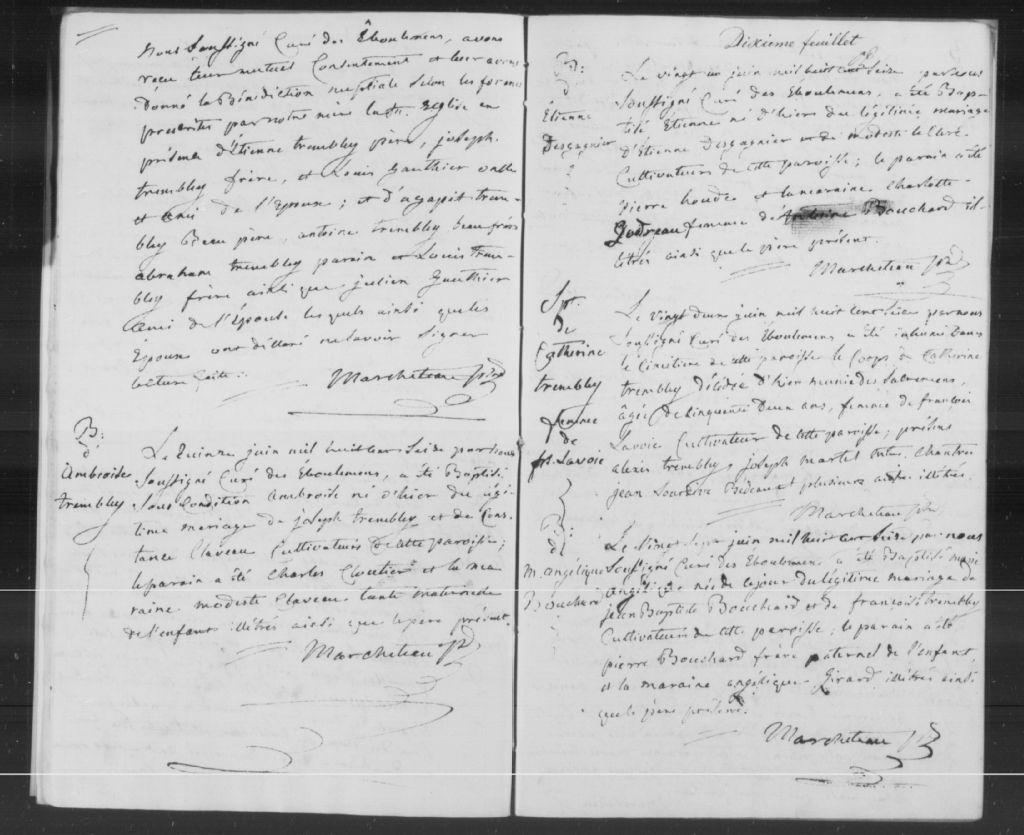 Nous Soussigné Curé des Eboulemens, avons
reçu leur mutuel Consentement et leur avons
donné la Bénédiction nuptiale Selon les formes
prescrites par notre mère la Ste. Eglise en
présence d'Etienne trembley père, joseph
trembley frère, et Louis Gauthier oncle
et ami de l'Epoux; et d'agapit trem-
bley Beau père, antoine trembley beau frère
abraham trembley parain et Louis trem-
bley frère ainsi que julien Gauthier
ami de l'Epouse lesquels ainsi que les
Epoux ont déclaré ne savoir Signer
lecture faite.
Marcheteau ptre
B:
d'
Ambroise
trembley
Le Quinze juin mil huit cent Seize par nous
Soussigné Curé des Eboulemens, a été Baptisé
Sous Condition Ambroise né d'hier du légi-
time mariage de joseph trembley et de Cons-
tance Claveau Cultivateurs de cette paroisse;
le parain a été Charles Cloutier et la ma
raine modeste Claveau tante maternelle
de l'enfant illétrés ainsi que le père présent.
Marcheteau ptre
Dixieme feuillet
B:
d'
Etienne
Desgagnier
Le vingt un juin mil huit cent Seize par nous
Soussigné Curé des Eboulemens, a été Bap-
tisé Etienne né d'hier du légitime mariage
d'Etienne Desgagnier et de modeste le Clerc
Cultivateurs de cette paroisse; le parain a été
Pierre houde et la maraine Charlotte
Godreau femme de Antoine Bouchard il-
létrés ainsi que le père présent.
Marcheteau ptre
Spr.
de
Catherine
trembley
femme
de
fr. Lavoie
Le vingt deux juin mil huit cent Seize par nous
Soussigné Curé des Eboulemens a été inhumé dans
le Cimetière de cette paroisse le Corps de Catherine
trembley décédée d'hier munie des Sacremens,
âgée de Cinquante deux ans, femme de françois
Lavoie Cultivateur de cette paroisse; présens
alexis trembley, joseph martel Chantres
jean Bedeau et plusieurs autres illétrés.
Marcheteau ptre
B:
d'
M. angelique
Bouchard
Le vingt Sept juin mil huit cent Seize par nous
Soussigné Curé des Eboulemens a été Baptisée marie
angélique née de ce jour du légitime mariage de
jean Baptiste Bouchard et de françoise trembley
Cultivateurs de cette paroisse; le parain a été
pierre Bouchard frère paternel de l'enfant
et la maraine angélique Girard illétrés ainsi
que le père présent.
Marcheteau ptre